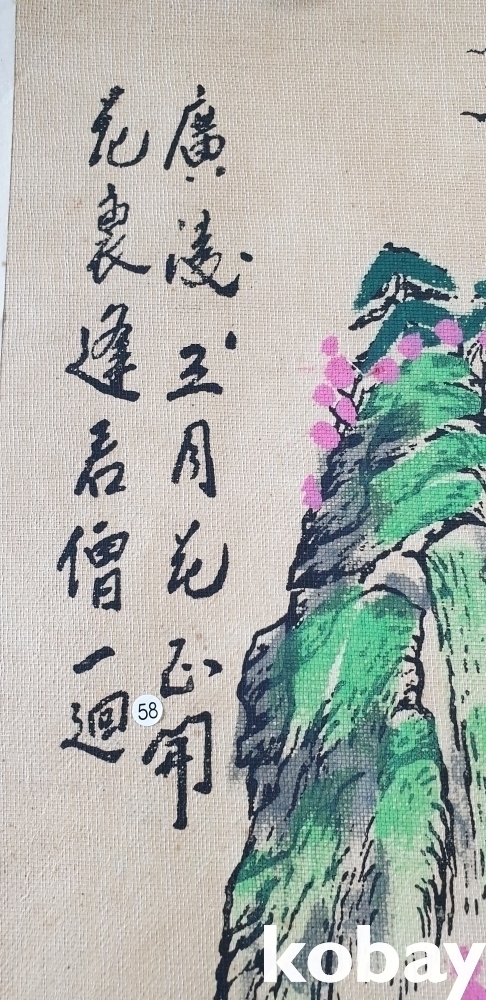 廣陵三月花正開
花裏逢君僧一迴
58
kobay